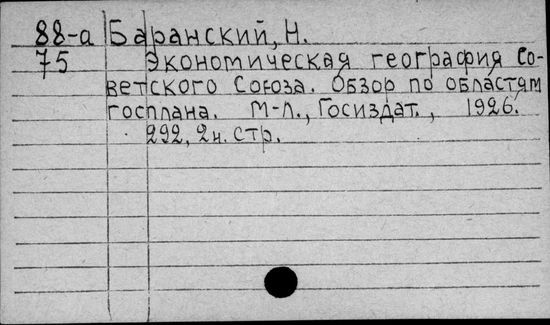 88-а Баранский, Н.
75 Экономическая география Со-
ветского Союза. Обзор по областям
госплана. М-Л., Госиздат., 1926.
292, 2н. стр.